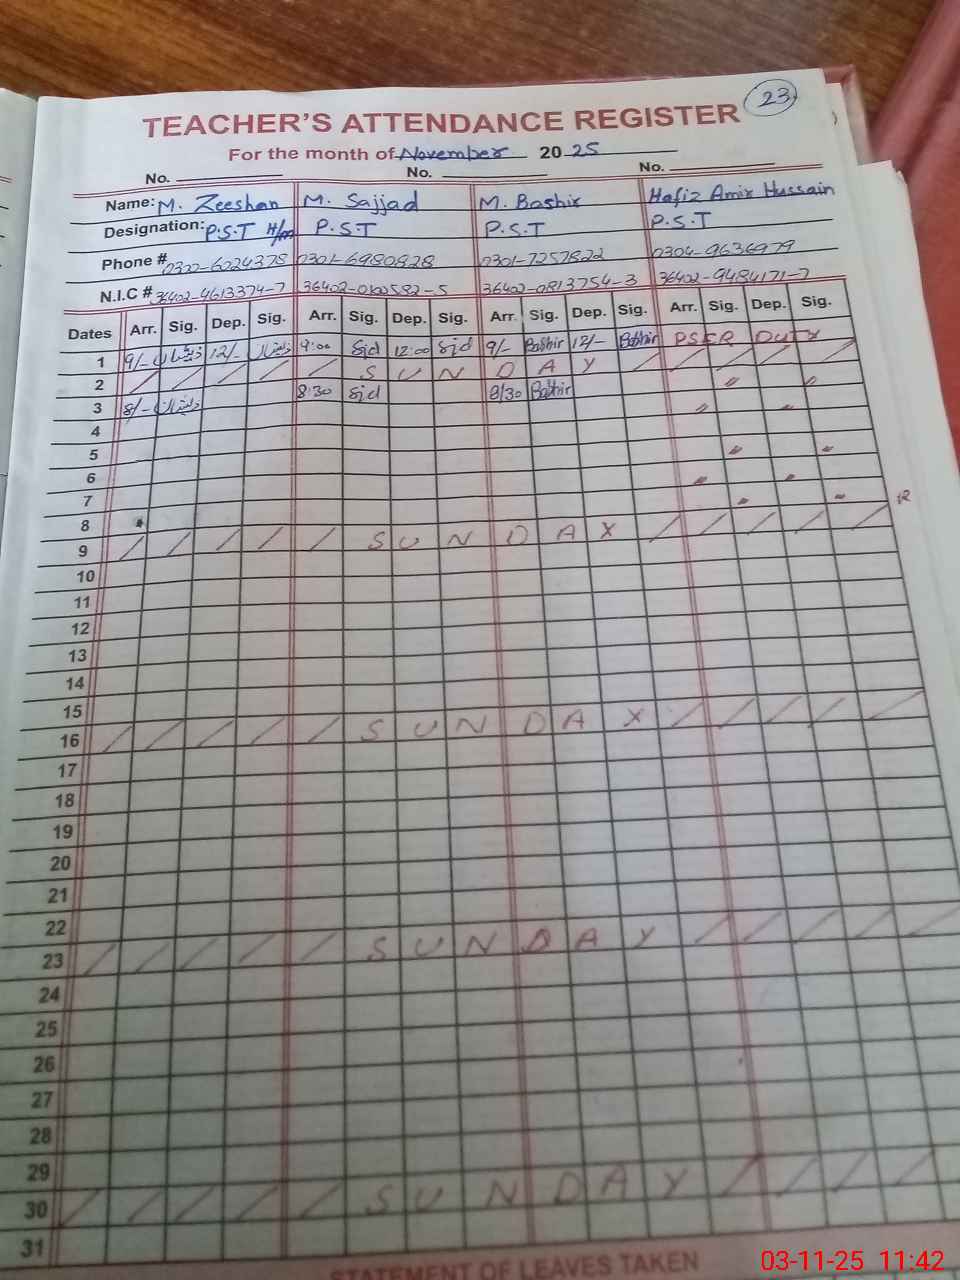 23
TEACHER'S ATTENDANCE REGISTER
For the month of November 2025
No. No. No.
Name: M. Zeeshan M. Sajjad M. Bashir Hafiz Amir Hussain
Designation: P.S.T H/m P.S.T P.S.T P.S.T
Phone # 0301-6980828 0301-7257822 0304-9636979
N.I.C # 36402-4613374-7 36402-0813754-3 36402-9484171-7
Dates Arr. Sig. Dep. Sig. Arr. Sig. Dep. Sig. Arr. Sig. Dep. Sig. Arr. Sig. Dep. Sig.
1 9/- ذیشان 12/- ذیشان 9:00 Sjd 12:00 Sjd 9/- Bashir 12/- Bashir PSER DUTY
2 SUNDAY
3 8/- ذیشان 8:30 Sjd 8/30 Bashir
4
5
6
7
8
9 SUNDAY
10
11
12
13
14
15
16 SUNDAY
17
18
19
20
21
22
23 SUNDAY
24
25
26
27
28
29
30 SUNDAY
31
STATEMENT OF LEAVES TAKEN
03-11-25 11:42